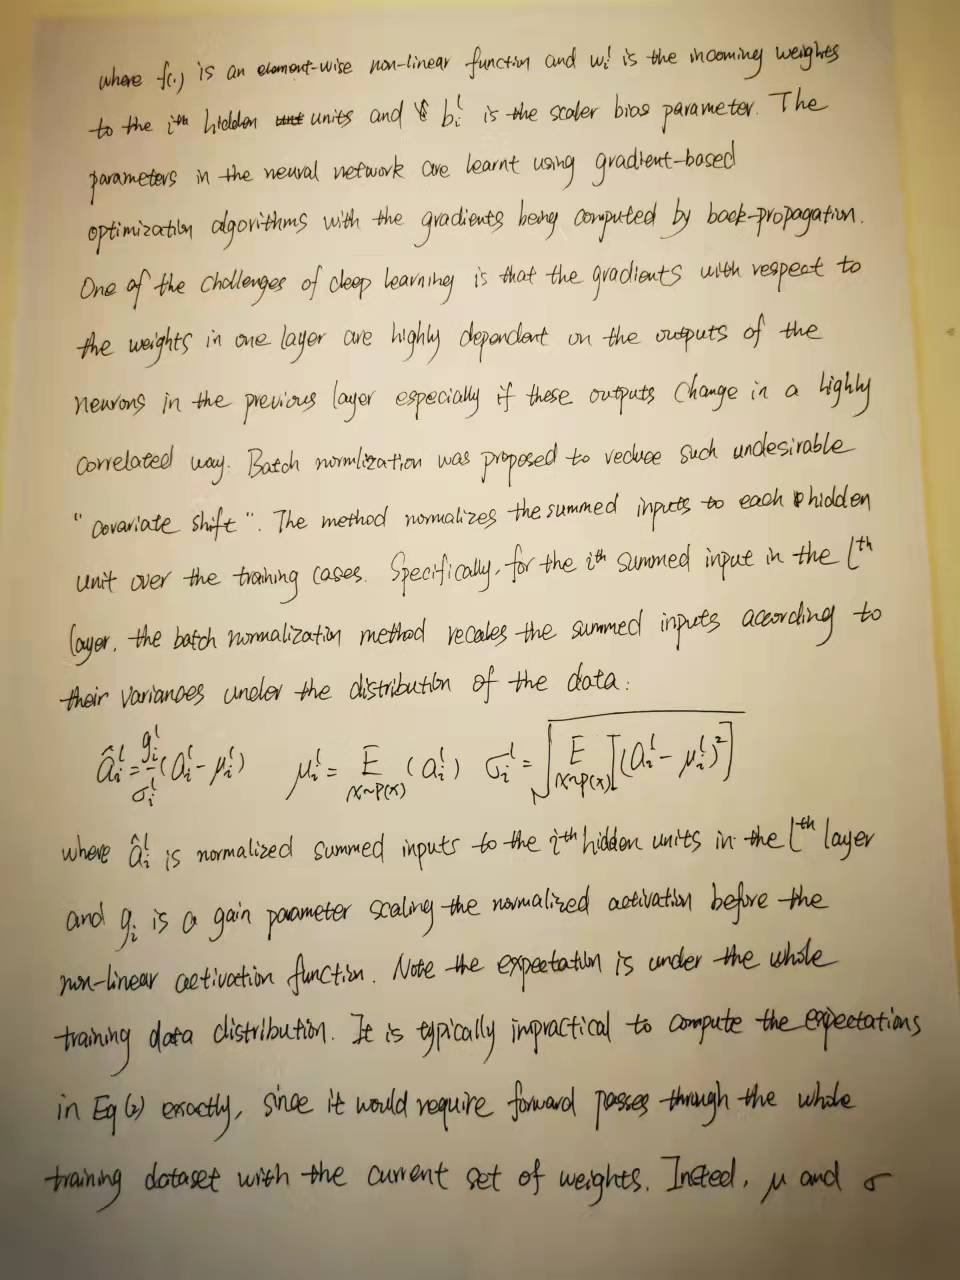 where f(·) is an element-wise non-linear function and wᵢˡ is the incoming weights
to the iᵗʰ hidden units and bᵢˡ is the scaler bias parameter. The
parameters in the neural network are learnt using gradient-based
optimization algorithms with the gradients being computed by back-propagation.
One of the challenges of deep learning is that the gradients with respect to
the weights in one layer are highly dependent on the outputs of the
neurons in the previous layer especially if these outputs change in a highly
correlated way. Batch normlization was proposed to reduce such undesirable
"covariate shift". The method normalizes the summed inputs to each hidden
unit over the training cases. Specifically, for the iᵗʰ summed input in the lᵗʰ
layer, the batch normalization method recales the summed inputs according to
their variances under the distribution of the data:
âᵢˡ = gᵢˡ/σᵢˡ (aᵢˡ - μᵢˡ) μᵢˡ = E_{x~p(x)} (aᵢˡ) σᵢˡ = √(E_{x~p(x)} [(aᵢˡ - μᵢˡ)²])
where âᵢˡ is normalized summed inputs to the iᵗʰ hidden units in the lᵗʰ layer
and gᵢ is a gain parameter scaling the normalized activation before the
non-linear activation function. Note the expectation is under the whole
training data distribution. It is typically impractical to compute the expectations
in Eq (2) exactly, since it would require forward passes through the whole
training dataset with the current set of weights. Insted, μ and σ